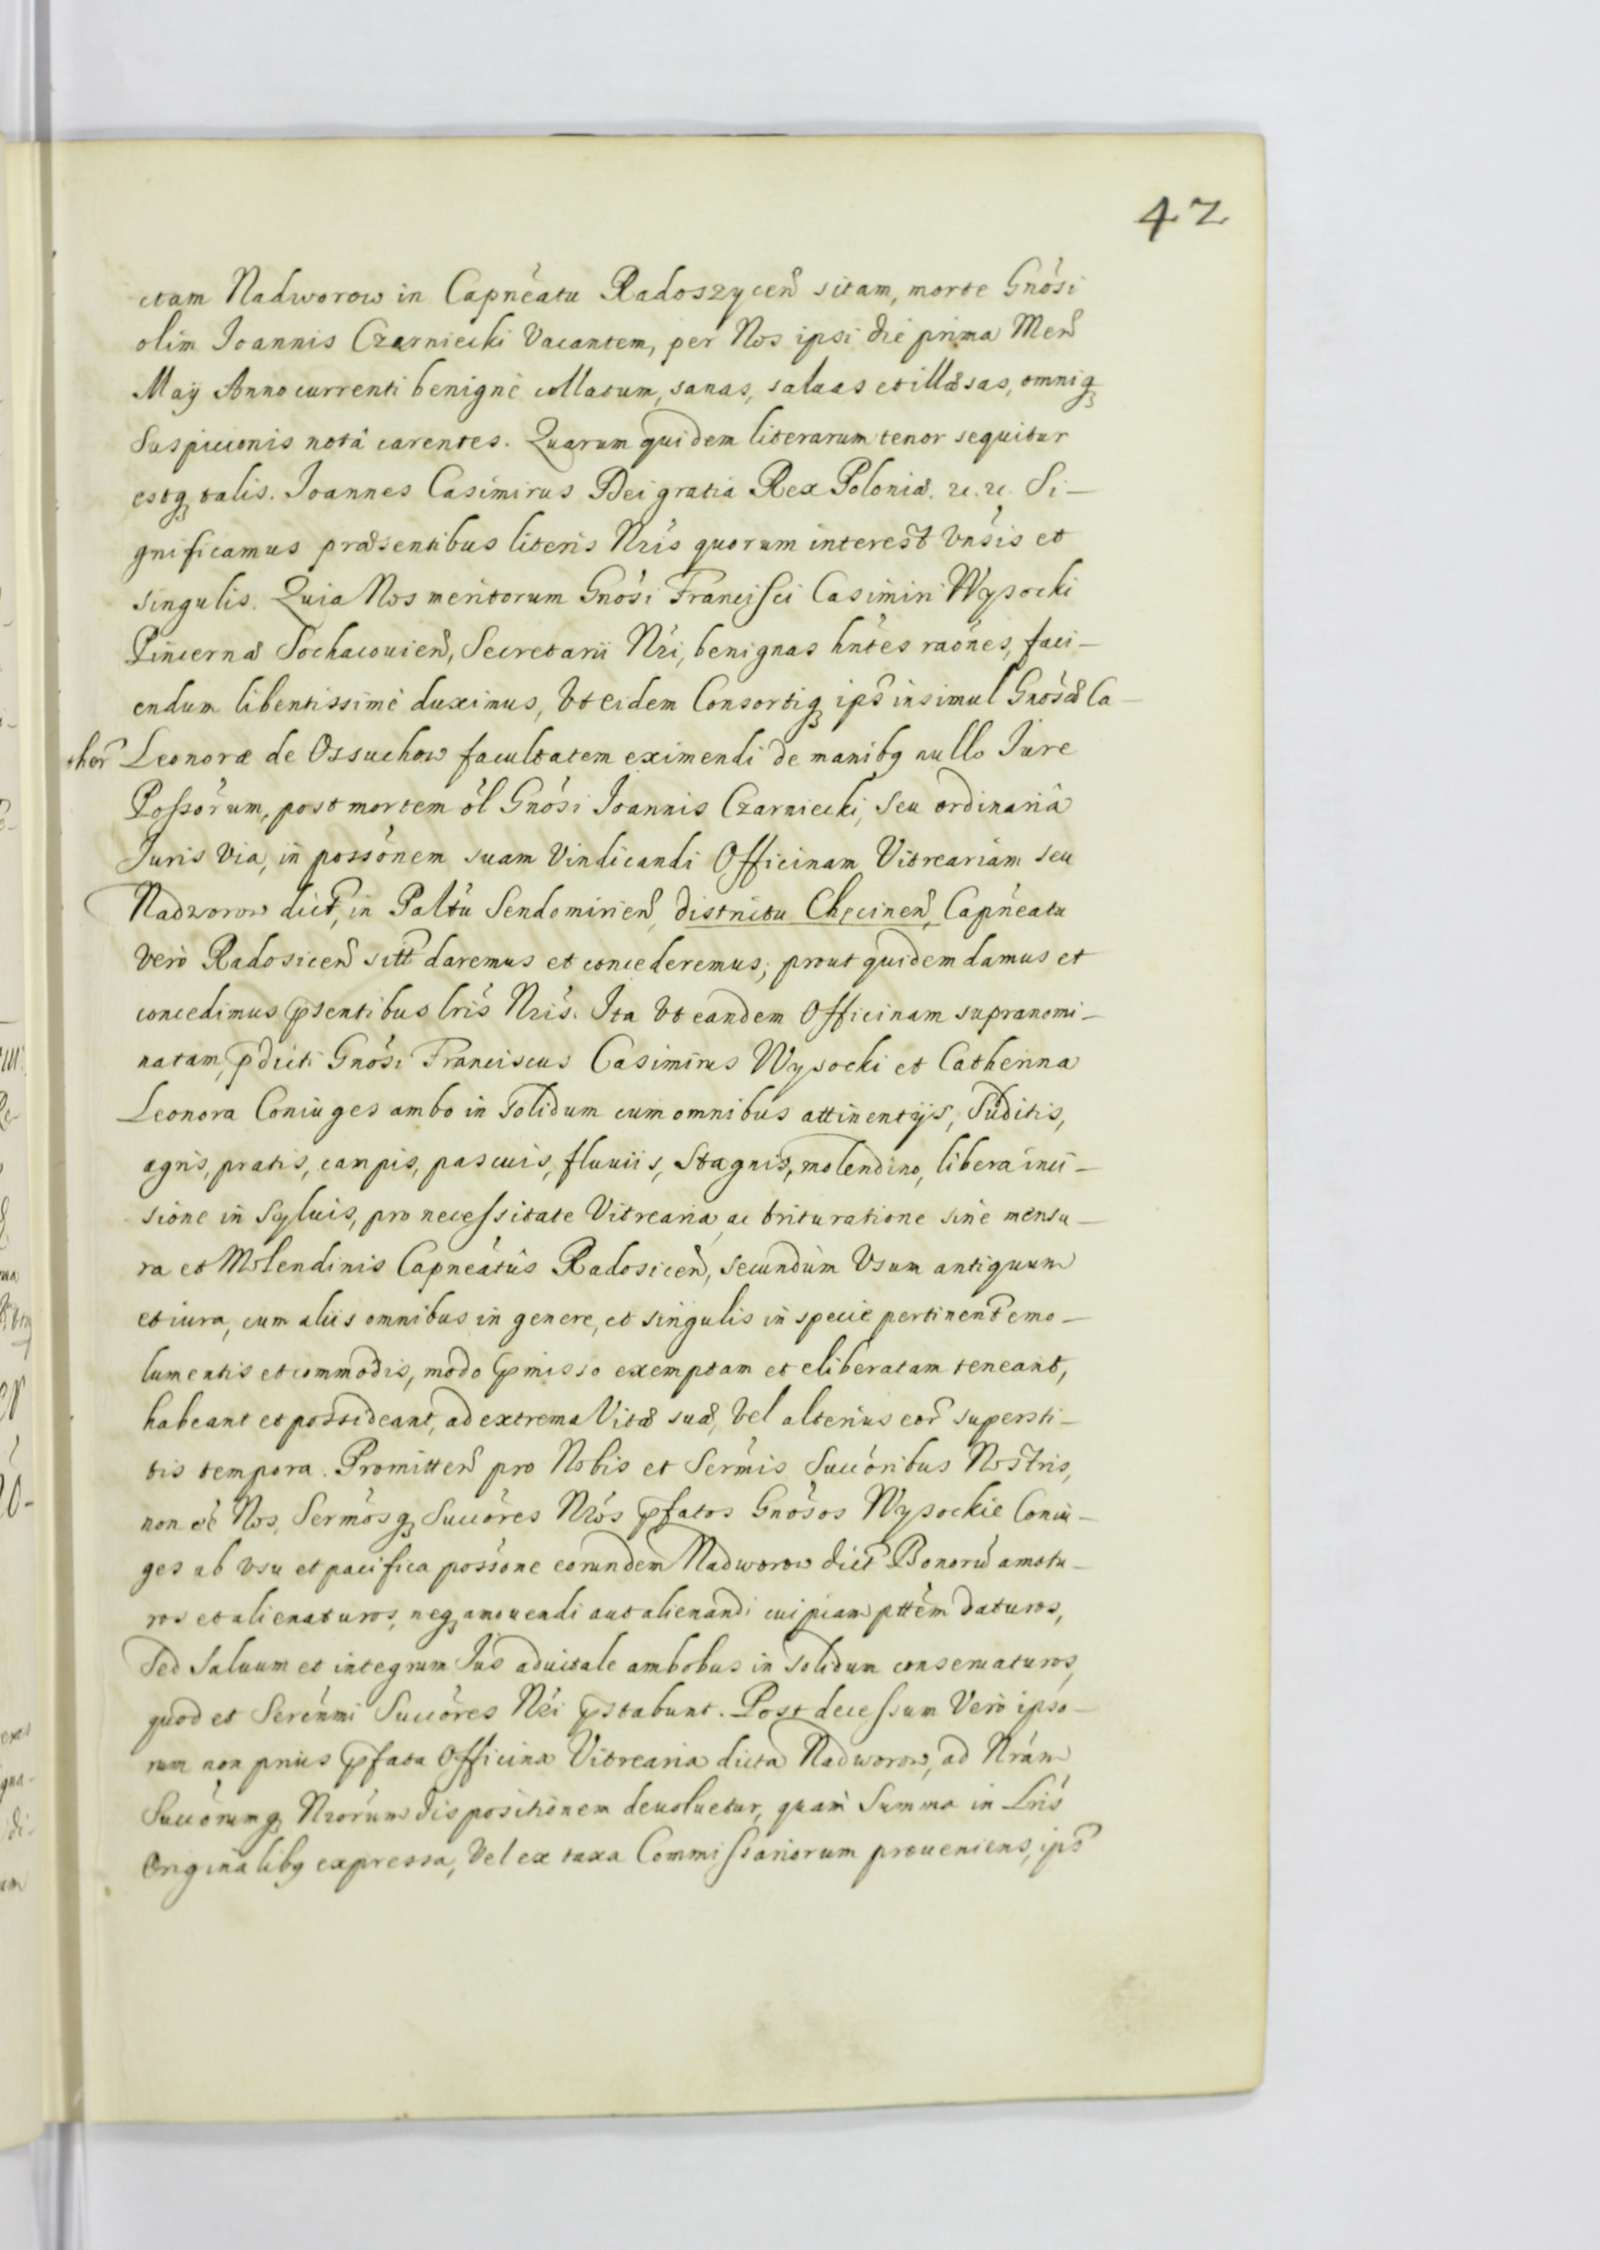 42
ctam Nadworow in Capnéatu Radoszyceñ sitam, morte Gnósi
olim Ioannis Czarniecki Vacantem, per Nos ipsi die prima Meñ
Maÿ Anno currenti benignè collatum, sanas, saluas et illæsas, omniq;
Suspicionis notâ carentes. Quarum quidem literarum tenor sequitur
estq; talis. Ioannes Casimirus Dei gratia Rex Poloniæ. &c. &c. Si-
gnificamus præsentibus literis Nris quorum interest Vnsis et
singulis. Quia Nos meritorum Gnósi Francisci Casimiri Wysocki
Pincernæ Sochacouieñ, Secretarii Nri, benignas hntes raónes, faci-
endum libentissimè duximus, Vt eidem Consortiq; ips insimul Gnósæ Ca-
ther Leonoræ de Ossuchow facultatem eximendi de manibq nullo Iure
Possórum, post mortem ól Gnósi Ioannis Czarniecki, seu ordinariâ
Iuris via, in possónem suam Vindicandi Officinam Vitreariam seu
Nadworow dict, in Paltu Sendomirieñ, districtu Chęcineñ, Capnéatu
Verò Radosiceñ sitt daremus et concederemus; prout quidem damus et
concedimus psentibus lris Nris. Ita Vt eandem Officinam supranomi-
natam, pdicti Gnósi Franciscus Casimirus Wysocki et Catherina
Leonora Coniuges ambo in solidum cum omnibus attinentÿs, Suditis,
agris, pratis, campis, pascuis, fluuiis, Stagnis, molendino, libera inci-
sione in Syluis, pro necessitate Vitrearia, ac trituratione sine mensu-
ra et Molendinis Capnéatûs Radosiceñ, secundùm Vsum antiquum
et iura, cum aliis omnibus in genere, et singulis in specie pertinent emo-
lumentis et commodis, modo pmisso exemptam et eliberatam teneant,
habeant et possideant, ad extrema Vitæ suæ, Vel alterius eor supersti-
tis tempora. Promitteñ pro Nobis et Sermis Succóribus Nostris,
non eé Nos, Sermósq; Succóres Nrós pfatos Gnósos Wysockie Coniu-
ges ab vsu et pacifica possóne eorundem Nadworow dict Bonorũ amotu-
ros et alienaturos, neq; amouendi aut alienandi cuipiam pttém daturos,
Sed Saluum et integrum Ius aduitale ambobus in solidum conseruaturos,
quod et Serénmi Succóres Nri pstabunt. Post decessum Verò ipso-
rum non prius pfata Officina Vitrearia dicta Nadworow, ad Nrám
Succórumq; Nrorum dispositionem deuoluetur, quàm Summa in Lris
Originalibq expressa, Vel ex taxa Commissariorum proueniens, ips